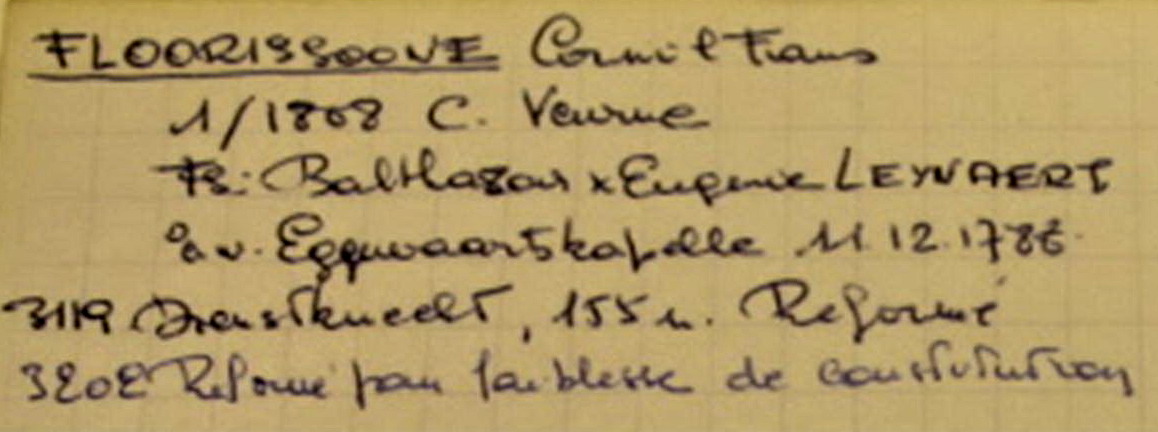 FLOORISSOONE Cornil Frans
1/1808 C. Veurne
Fs: Balthazar x Eugenie LEYNAERT
° a v. Eggewaartskapelle 11.12.1786
3119 Dienstknecht, 155 m. Reformé
3202 Reformé pour faiblesse de constitution